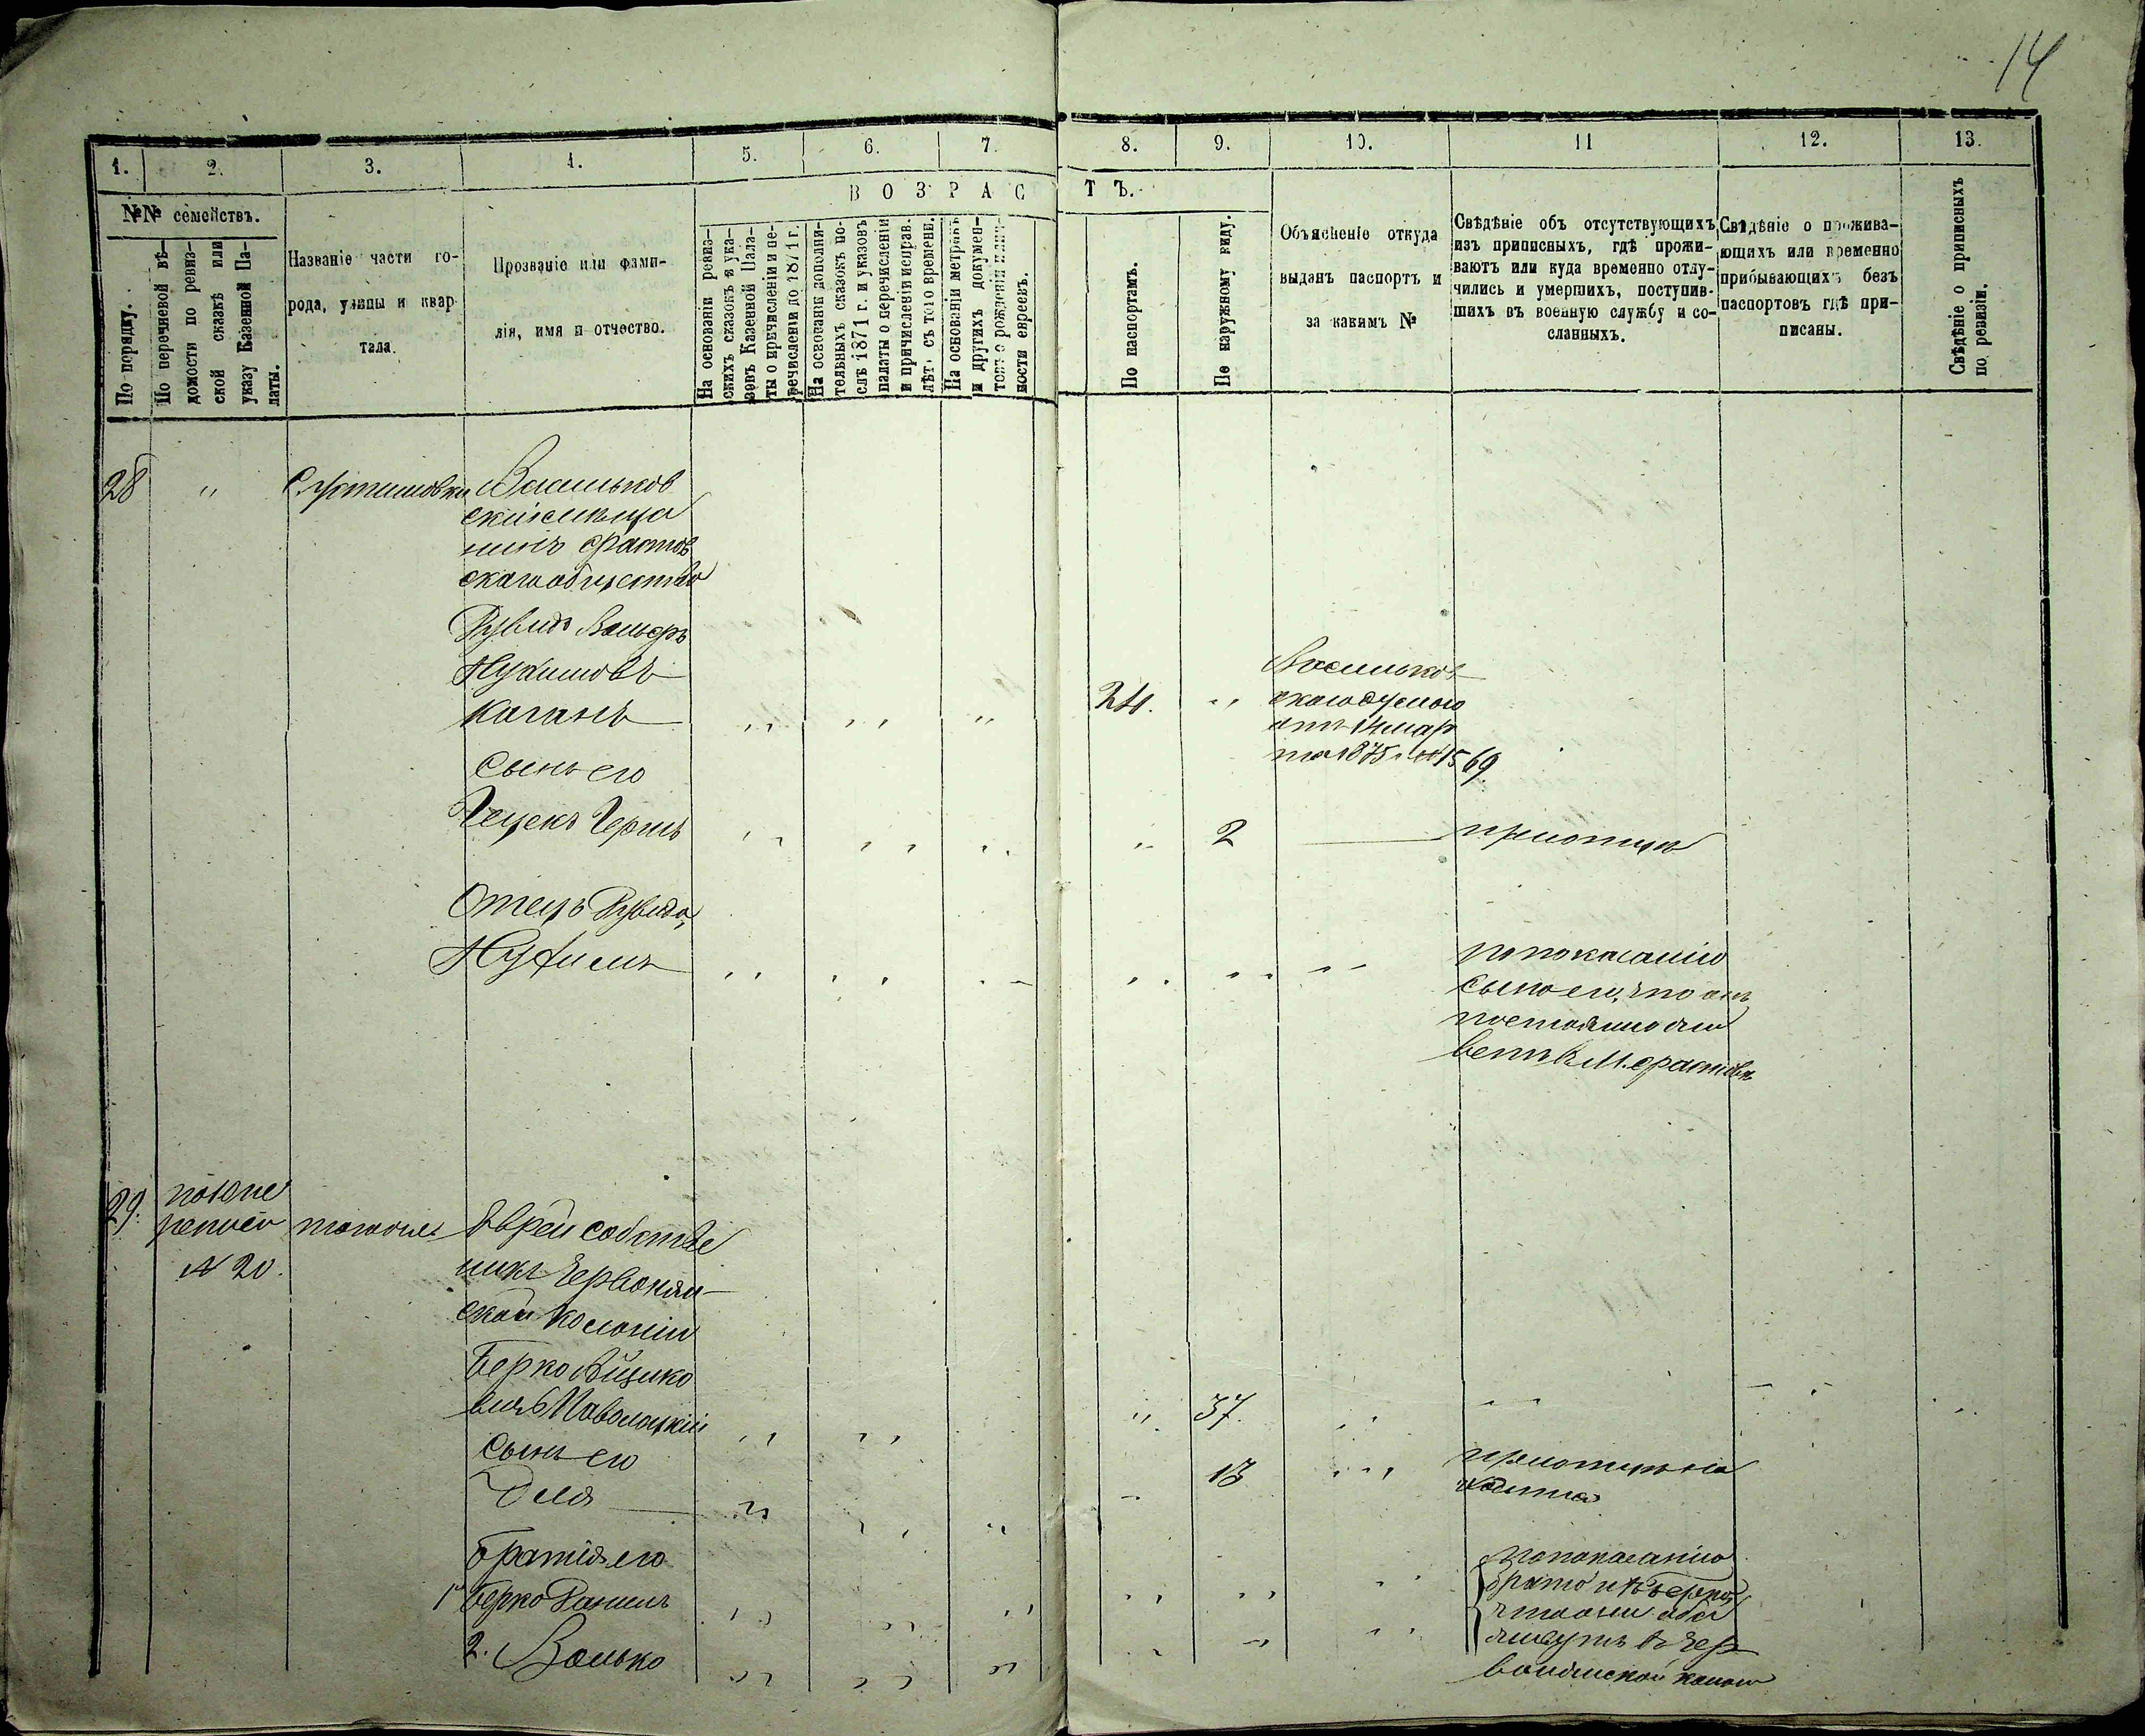 14
1. 2. 3. 4. 5. 6. 7. 8. 9. 10. 11 12. 13.
ВОЗРАСТЪ.
№№ семействъ.
По порядку.
По перечневой вѣ-
домости по ревиз-
ской сказкѣ или
указу Казенной Па-
латы.
Названіе части го-
рода, улицы и квар-
тала.
Прозваніе или фами-
лія, имя и отчество.
На основаніи ревиз-
скихъ сказокъ и ука-
зовъ Казенной Пала-
ты о причисленіи и пе-
речисленіи до 1871 г.
На основаніи дополни-
тельныхъ сказокъ по-
слѣ 1871 г. и указовъ
палаты о перечисленіи
и причисленіи исправ.
лѣт. съ того времени.
На основаніи метрикъ
и других докумен-
товъ о рожденіи
ности евреевъ.
По паспортамъ.
По наружному виду.
Объясненіе откуда
выданъ паспортъ и
за какимъ №
Свѣдѣніе объ отсутствующихъ
изъ приписныхъ, гдѣ прожи-
ваютъ или куда временно отлу-
чились и умершихъ, поступив-
шихъ въ военную службу и со-
сланныхъ.
Свѣдѣніе о прожива-
ющихъ или временно
прибывающихъ безъ
паспортовъ гдѣ при-
писаны.
Свѣдѣніе о приписныхъ
по ревизіи.
28 " С. Устимовка Васильков
скій мѣща
нинъ Фастов
скаго общества
Рувидъ Вольфъ
Нухимовъ
Каганъ 24.
Васильков
скаго
отъ 14 мар
та 1875 г. № 1569
Сынъ его
Гершъ 2
Отецъ Рувида
Нухимъ
по показанію
сына его, что онъ
постоянно жи
ветъ в М. Фастовѣ
29. ревизіи тоже Еврей собстве
№ 20. никъ Червонян
ской колоніи
Берко Айзико
вичъ Паволоцкій 37.
Сынъ его
13
Братія его
1 Берко Данилъ
2. Волько
по показанію
брата ихъ Берко,
что они оба
живутъ въ Чер
вонянской колоні